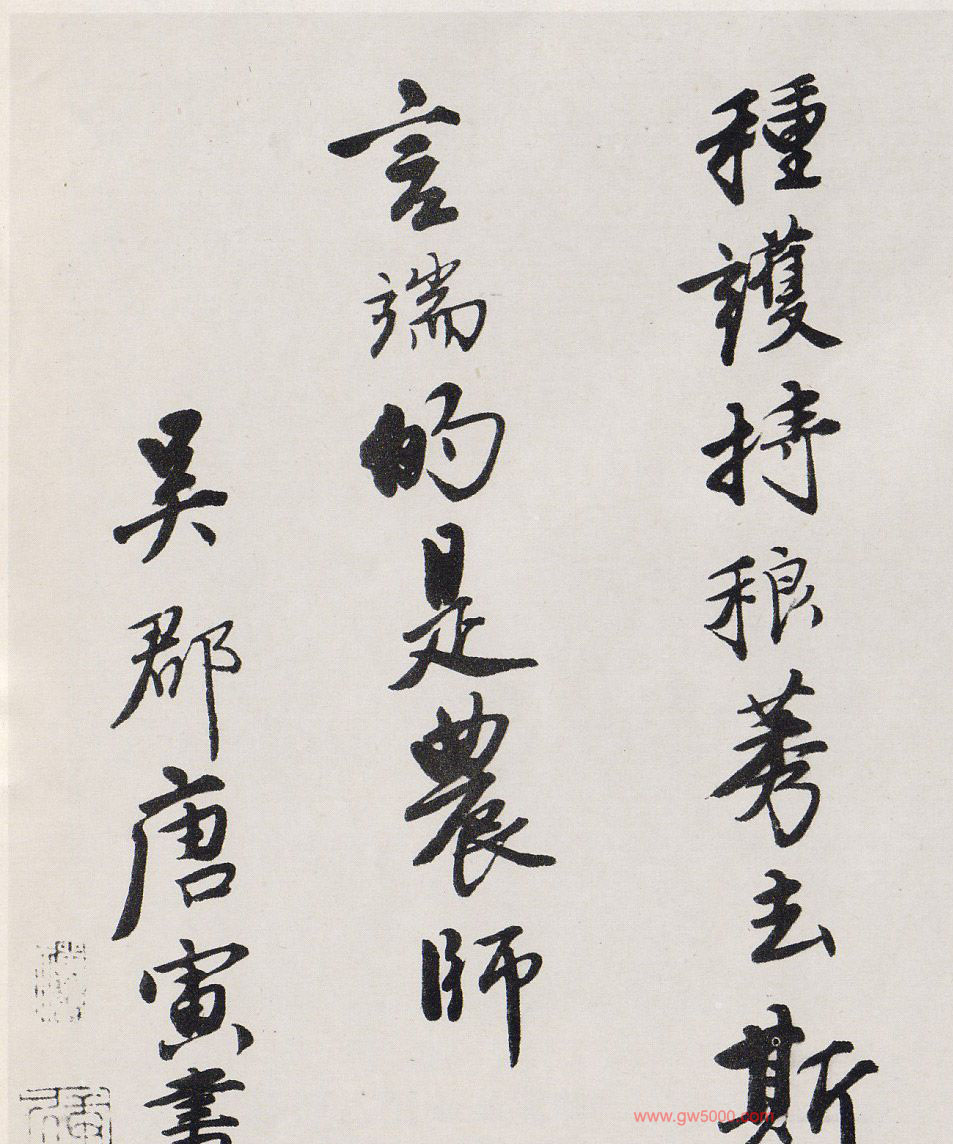 種護持稂莠去斯
言端的是農師
吳郡唐寅書
www.gw5000.com